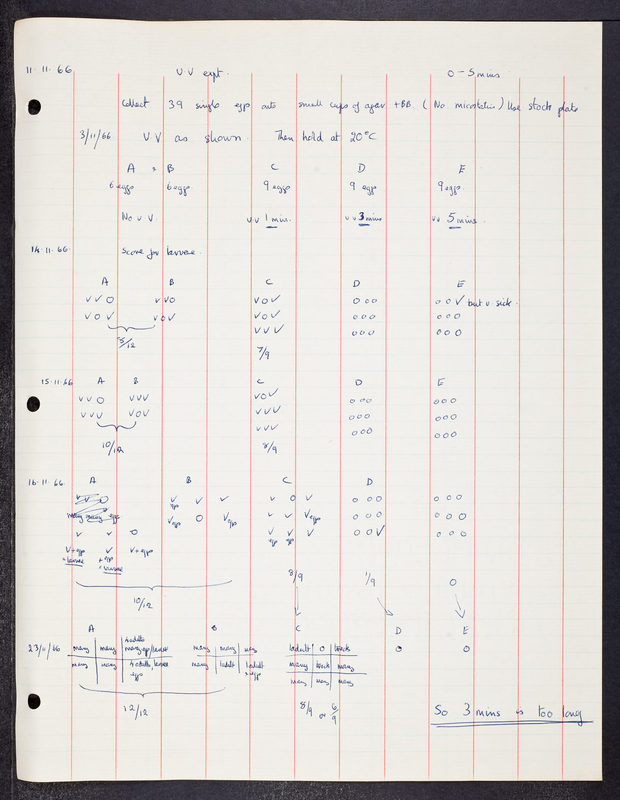 11.11.66 U.V expt. 0 - 5 mins
Collect 39 single eggs onto small cups of agar + BB. (No microstatin) Use stock plate
3/11/66 UV as shown. Then hold at 20°C
A + B C D E
6 eggs 6 eggs 9 eggs 9 eggs 9 eggs
No u V. u.v 1 min. u v 3 mins uv 5 mins.
14.11.66. Score for larvae.
A B C D E
v v o v v o v o v o o o o o v but v. sick.
v o v v o v v o v o o o o o o
v v v o o o o o o
5/12 7/9
15.11.66 A B C D E
v v o v v v v o v o o o o o o
v v v v o v v v v o o o o o o
v v v o o o o o o
10/12 8/9
16.11.66. A B C D
v v o v v v v o v o o o o o o
many many eggs egg
v o v egg v v v eggs o o o o o o
v v o v v v o o v o o o
egg egg
v + egg v v + egg
+ larvae + egg
+ larvae
10/12 8/9 1/9 0
A B C D E
23/11/66 many many 4 adults many egg/larvae many many many 1 adult o track o o
many many 4 adults larvae eggs many 1 adult 1 adult + egg many track many
many many many
12/12 8/9 or 6/9
So 3 mins is too long